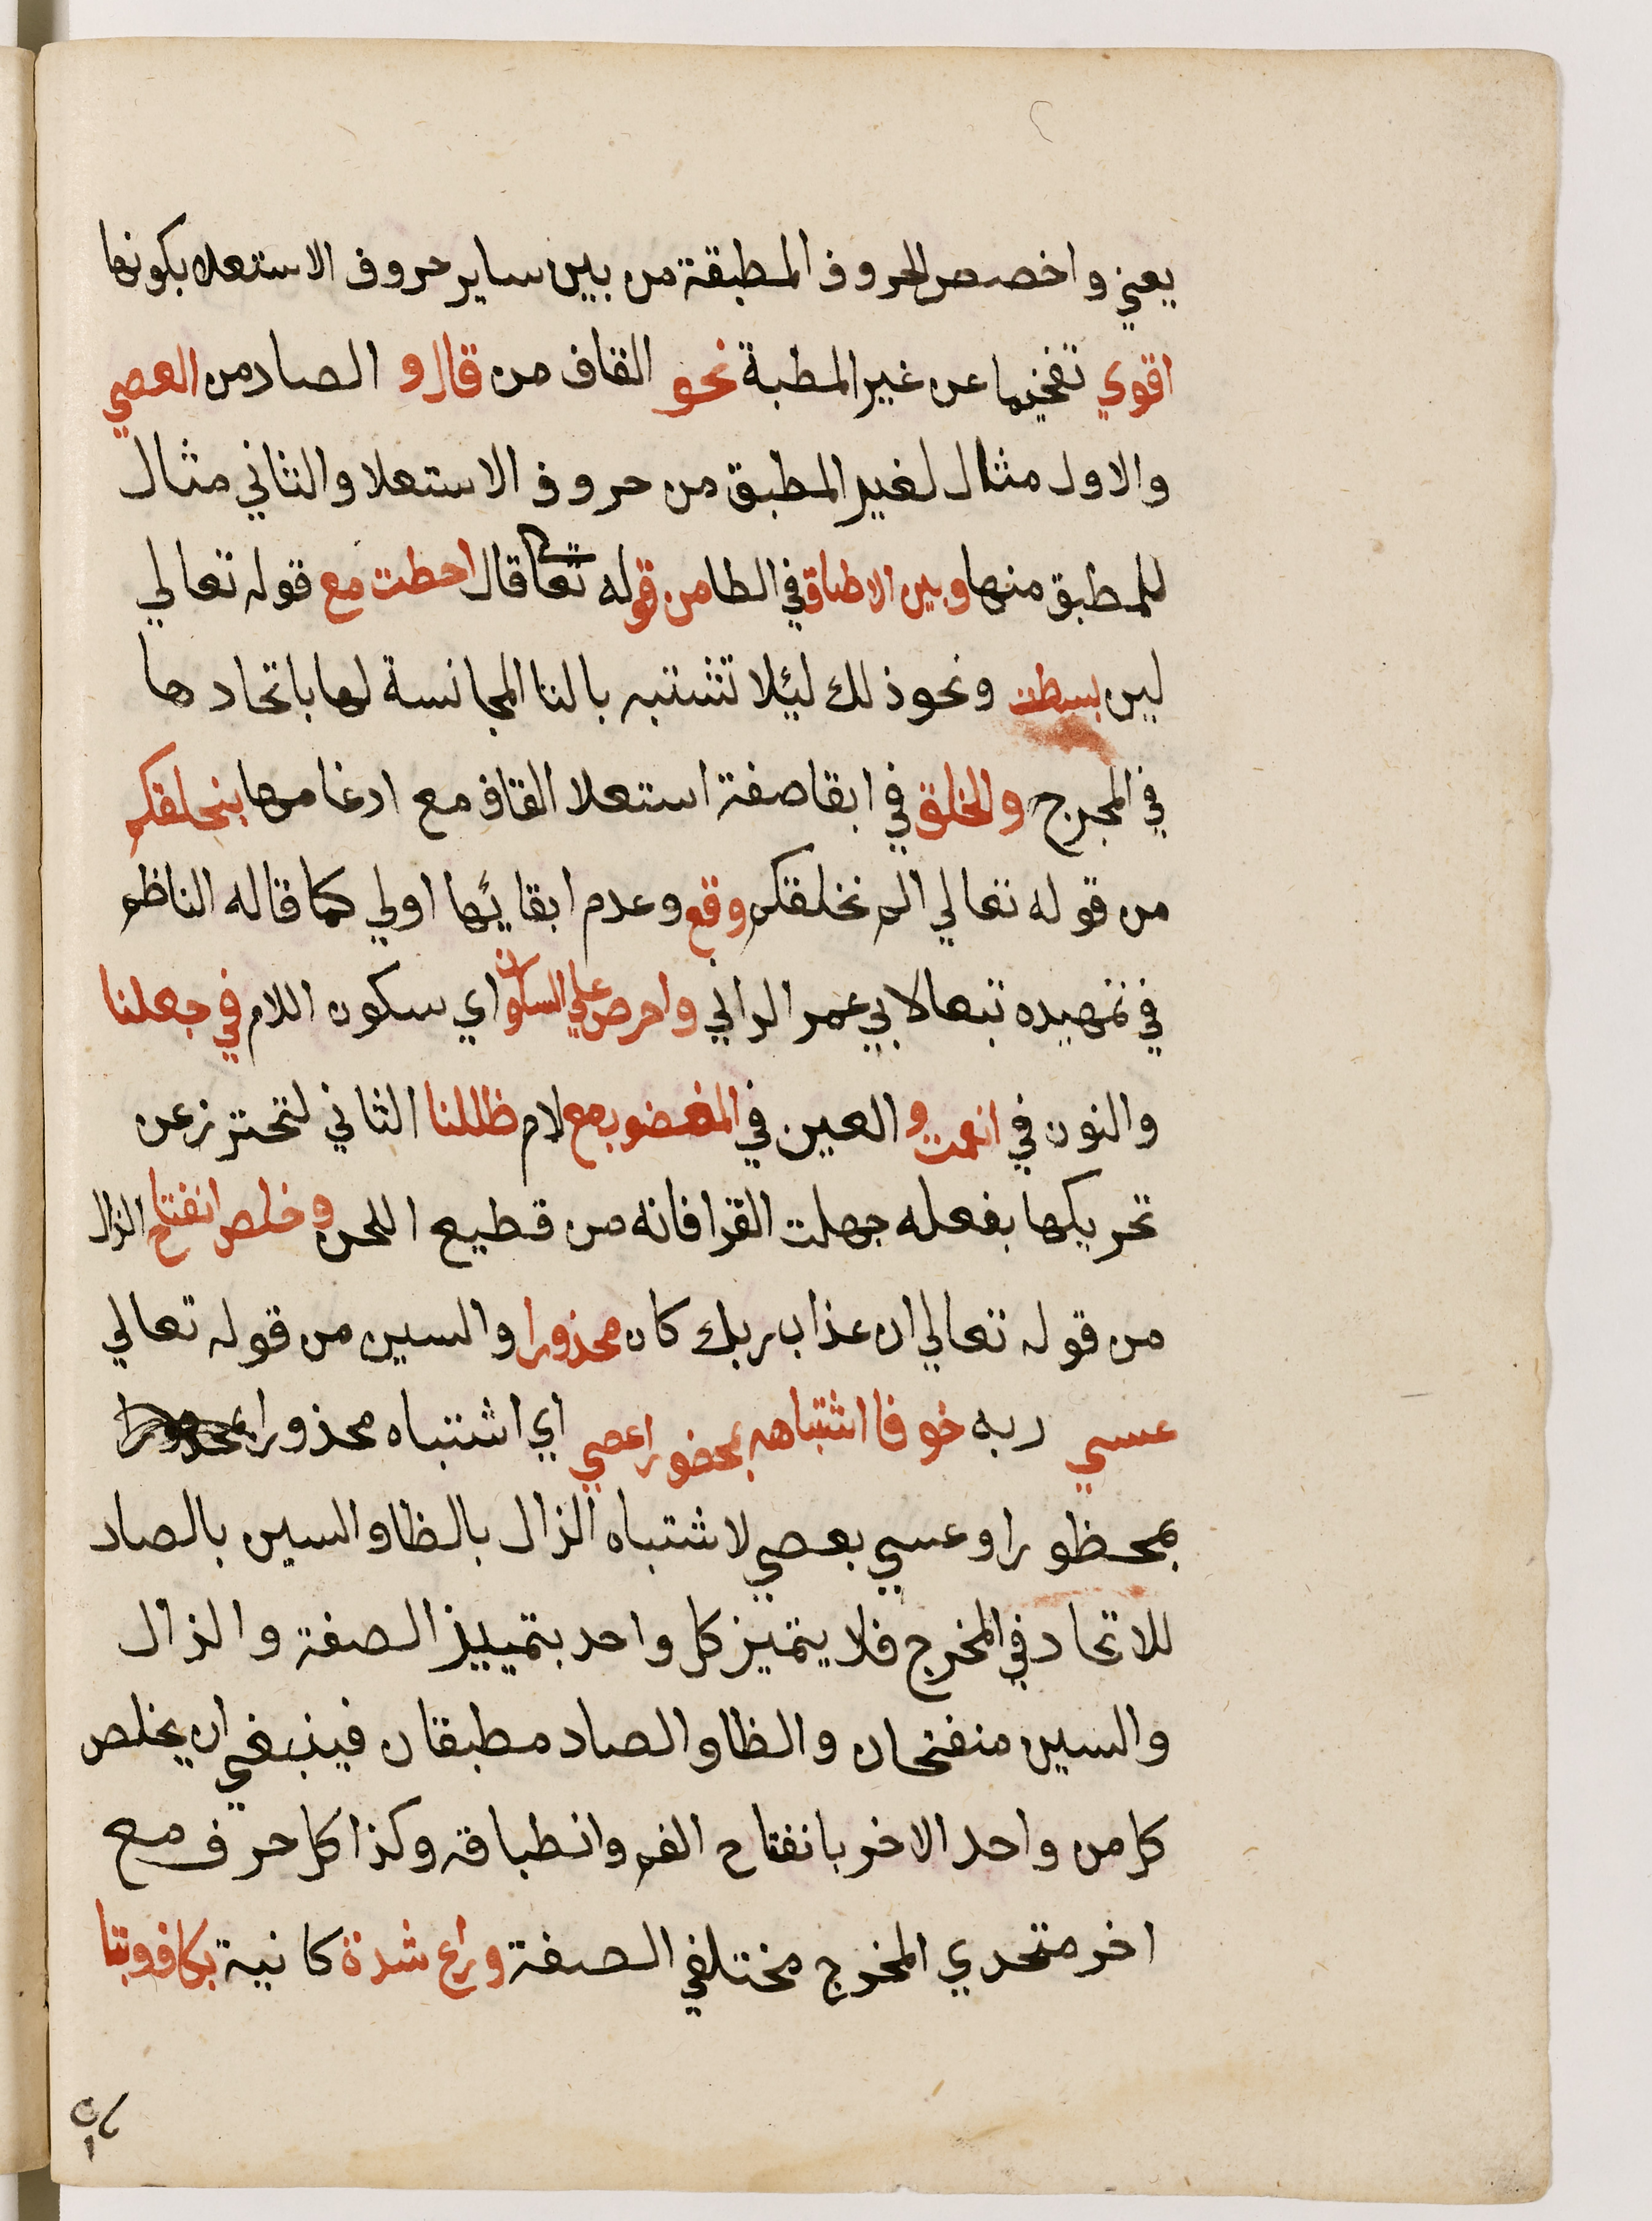 يعني واخصص الحروف المطبقة من بين ساير حروف الاستعلا بكونها
اقوي تفخيما عن غير المطبة نحو القاف من قال و الصاد من العصي
والاول مثال لغير المطبق من حروف الاستعلا والثاني مثال
للمطبق منها وبين الاطباق في الطا من قوله تعا قال احطت مع قوله تعالي
لين بسطت ونحو ذلك ليئلا تشتبه بالتا المجانسة لها باتحادها
في المجرج والخلق في ابقا صفة استعلا القاف مع ادغامها بنحلقكم
من قوله تعالي الم نخلقكم وقع وعدم ابقايها اولي كما قاله الناظم
في تمهيده تبعا لابي عمر الداني واحرص علي السكون اي سكون اللام في جعلنا
والنون في انعمت و العين في المغضوب مع لام ظللنا الثاني لتحترز عن
تحريكها بفعله جهلت القرا فانه من قطيع اللحن وخلص انفتاح الذال
من قوله تعالي ان عذاب ربك كان محذورا والسين من قوله تعالي
عسي ربه خوفا اشتباهه بمحضورا عصي اي اشتباه محذورا
بمحظورا وعسي بعصي لاشتباه الذال بالظا والسين بالصاد
للاتحاد في المخرج فلا يتميز كل واحد بتمييز الصفة والذال
والسين منفتحان والظا والصاد مطبقان فينبغي ان يخلص
كل من واحد الاخر بانفتاح الفم وانطباقه وكذا كل حرف مع
اخر متحدي المخرج مختلفي الصفة وراع شدة كانية بكاف وبتا